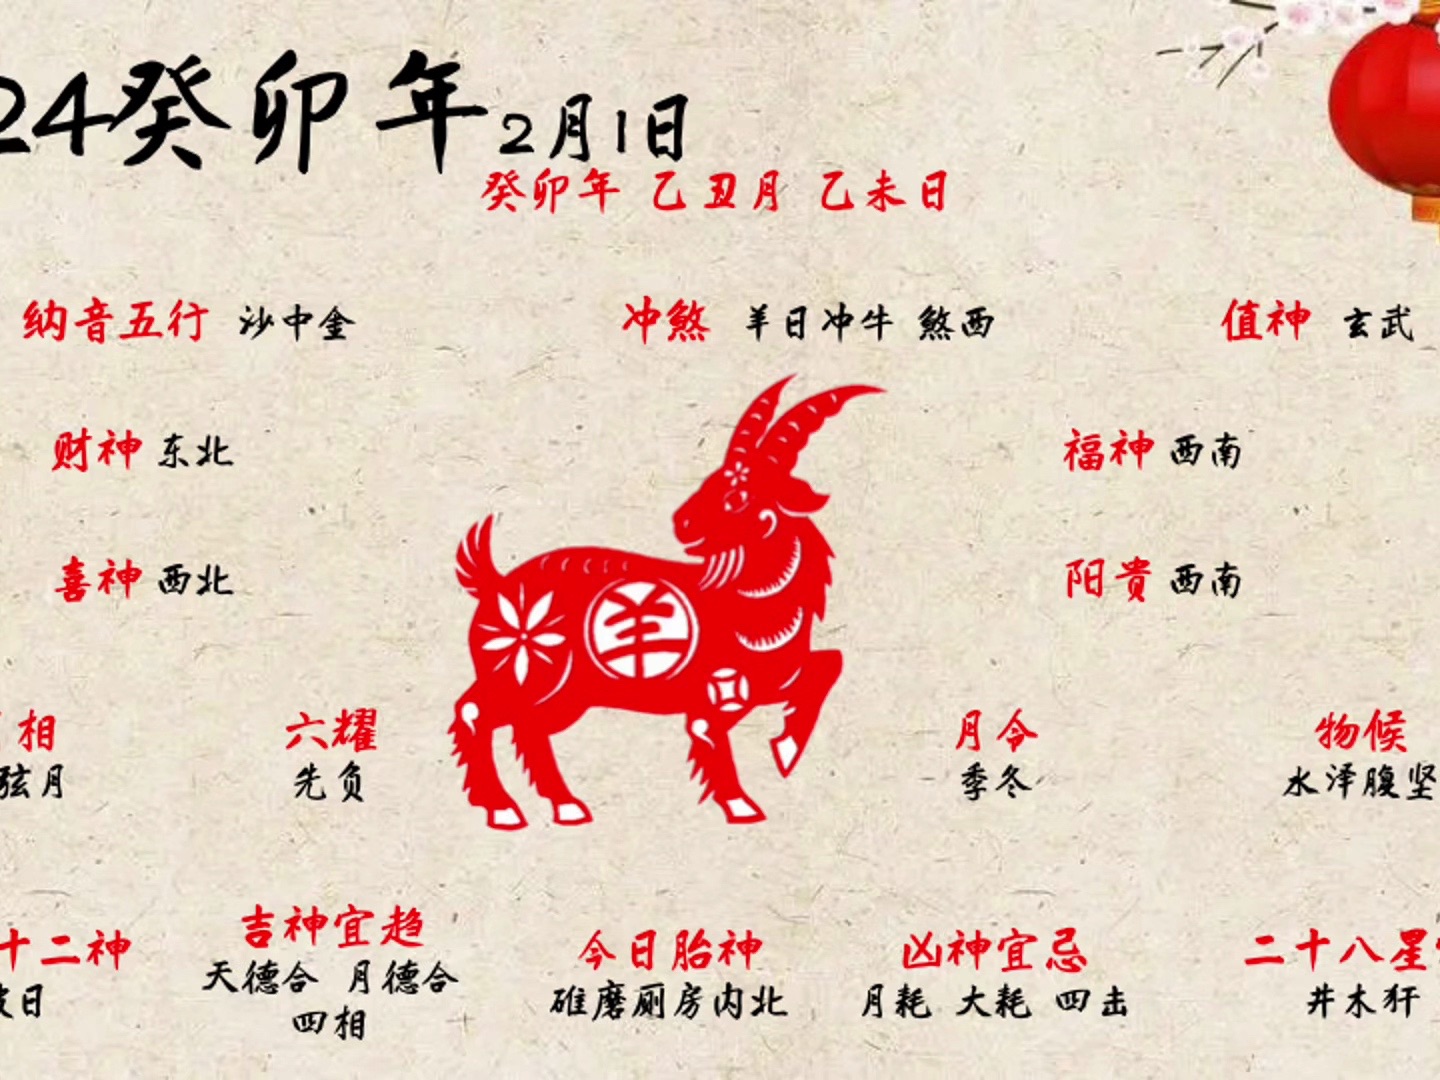 24癸卯年2月1日
癸卯年 乙丑月 乙未日
纳音五行 沙中金
冲煞 羊日冲牛 煞西
值神 玄武
财神 东北
福神 西南
喜神 西北
阳贵 西南
羊
相
弦月
六耀
先负
月令
季冬
物候
水泽腹坚
十二神
日
吉神宜趋
天德合 月德合
四相
今日胎神
碓磨厕房内北
凶神宜忌
月耗 大耗 四击
二十八星
井木犴